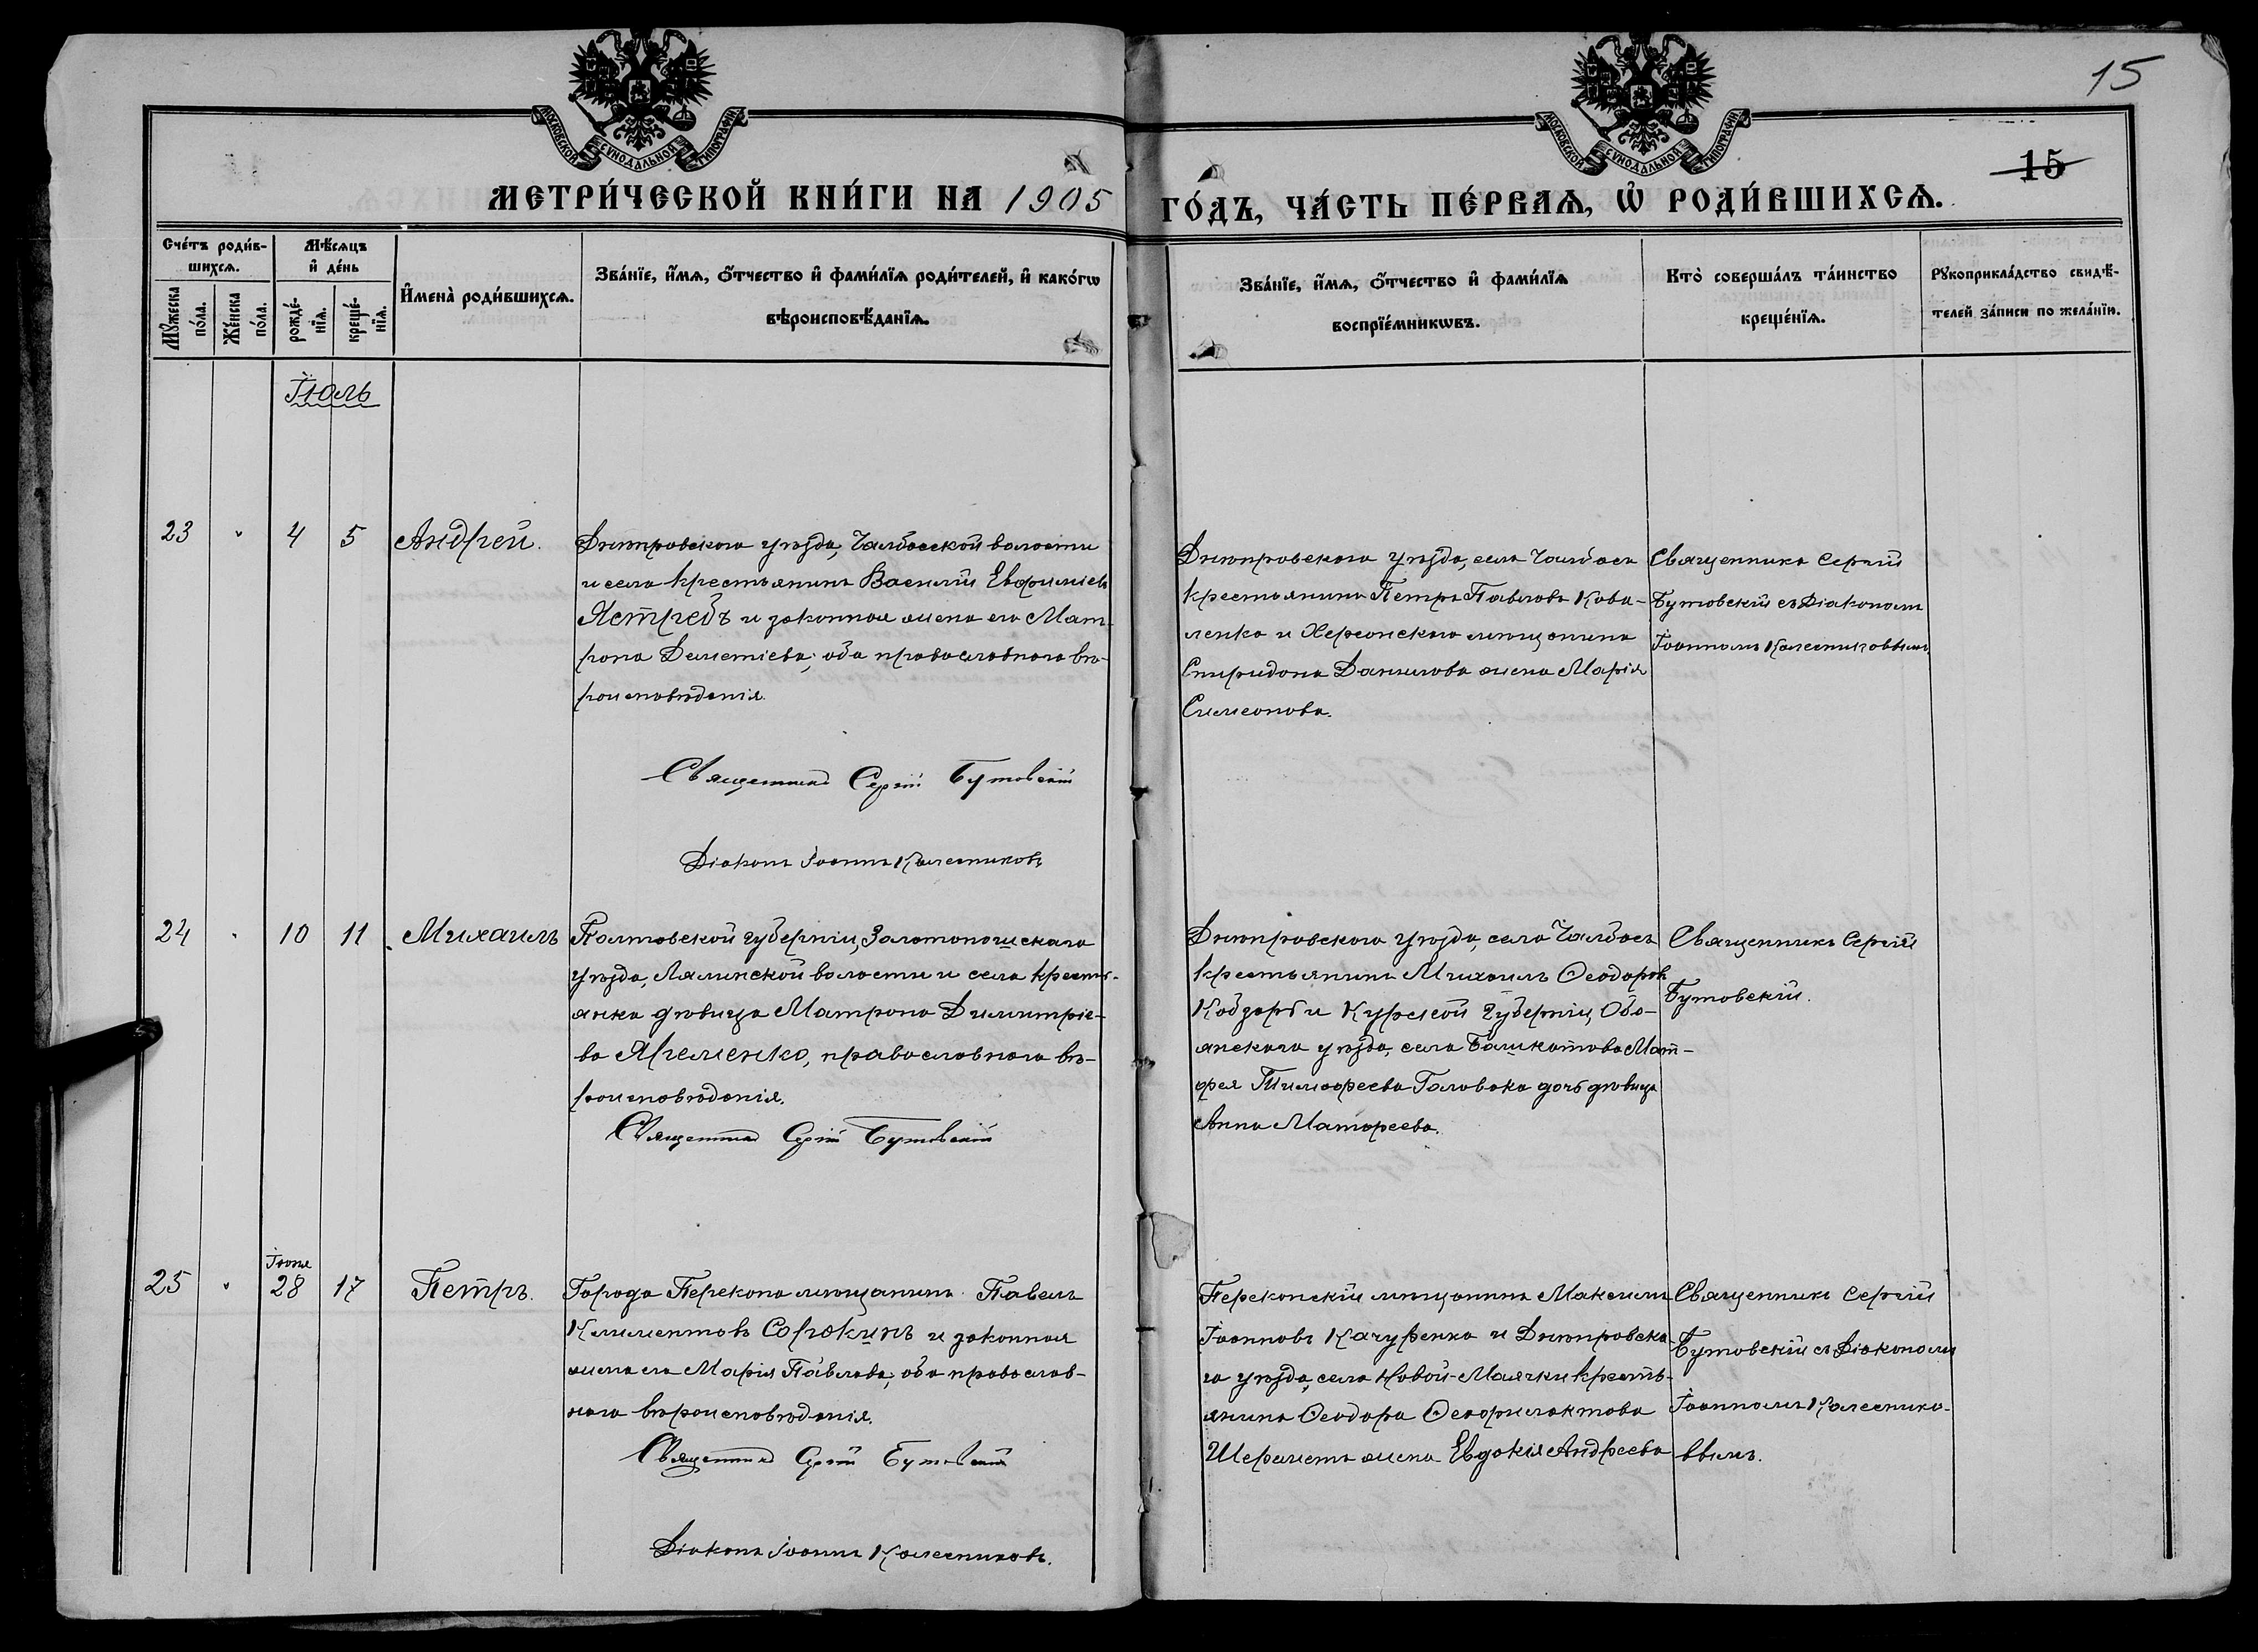 15
15
МОСКОВСКОЙ СѴНОДАЛЬНОЙ ТИПОГРАФІИ
МОСКОВСКОЙ СѴНОДАЛЬНОЙ ТИПОГРАФІИ
МЕТРИ́ЧЕСКОЙ КНИ́ГИ НА 1905 ГО́ДЪ, ЧА́СТЬ ПЕ́РВАѦ, Ѡ҆ РОДИ́ВШИХСѦ.
Сче́тъ роди́в-
шихсѧ.
Мꙋ́жеска
по́ла.
Же́нска
по́ла.
Мѣ́сѧцъ
и҆ де́нь
рожде́-
нїѧ.
креще́-
нїѧ.
И҆мена̀ роди́вшихсѧ.
Зва́нїе, и҆́мѧ, ѻ҆́тчество и҆ фами́лїѧ роди́телей, и҆ како́гѡ
вѣроисповѣ́данїѧ.
Зва́нїе, и҆́мѧ, ѻ҆́тчество и҆ фами́лїѧ
воспрїе́мникѡвъ.
Кто̀ соверша́лъ та́инство
креще́нїѧ.
Рꙋкоприкла́дство свидѣ́-
телей за́писи по жела́нїю.
Іюль
23 " 4 5 Андрей.
Днѣпровскаго уѣзда, Чалбасской волости
и села крестьянинъ Василій Евфиміевъ
Ястребъ и законная жена его Мат-
рона Дементіева; оба православнаго вѣ-
роисповѣданія.
Священникъ Сергій Бутовскій
Діаконъ Іоаннъ Колесниковъ
Днѣпровскаго уѣзда, села Чалбасъ
крестьянинъ Петръ Павловъ Кова-
ленко и Херсонскаго мѣщанина
Спиридона Данилова жена Марія
Симеонова.
Священникъ Сергій
Бутовскій съ Діакономъ
Іоанномъ Колесниковымъ.
24 " 10 11 Михаилъ
Полтавской губерніи, Золотоношскаго
уѣзда, Лялинской волости и села кресть-
янка дѣвица Матрона Димитріе-
ва Яременко, православнаго вѣ-
роисповѣданія.
Священникъ Сергій Бутовскій
Днѣпровскаго уѣзда, села Чалбасъ
крестьянинъ Михаилъ Ѳеодоровъ
Кобзарь и Курской губерніи, Обо-
янскаго уѣзда, села Башкатова Мат-
фея Тимофеева Головока дочь дѣвица
Анна Матфеева.
Священникъ Сергій
Бутовскій.
25 " Іюня 28 17 Петръ.
Города Перекопа мѣщанинъ Павелъ
Климентовъ Сорокинъ и законная
жена его Марія Павлова; оба православ-
наго вѣроисповѣданія.
Священникъ Сергій Бутовскій
Діаконъ Іоаннъ Колесниковъ.
Перекопскій мѣщанинъ Максимъ
Іоанновъ Качуренко и Днѣпровска-
го уѣзда, села Новой-Маячки кресть-
янина Ѳеодора Ѳеофилактова
Шереметъ жена Евдокія Андреева
Священникъ Сергій
Бутовскій съ Діакономъ
Іоанномъ Колеснико-
вымъ.